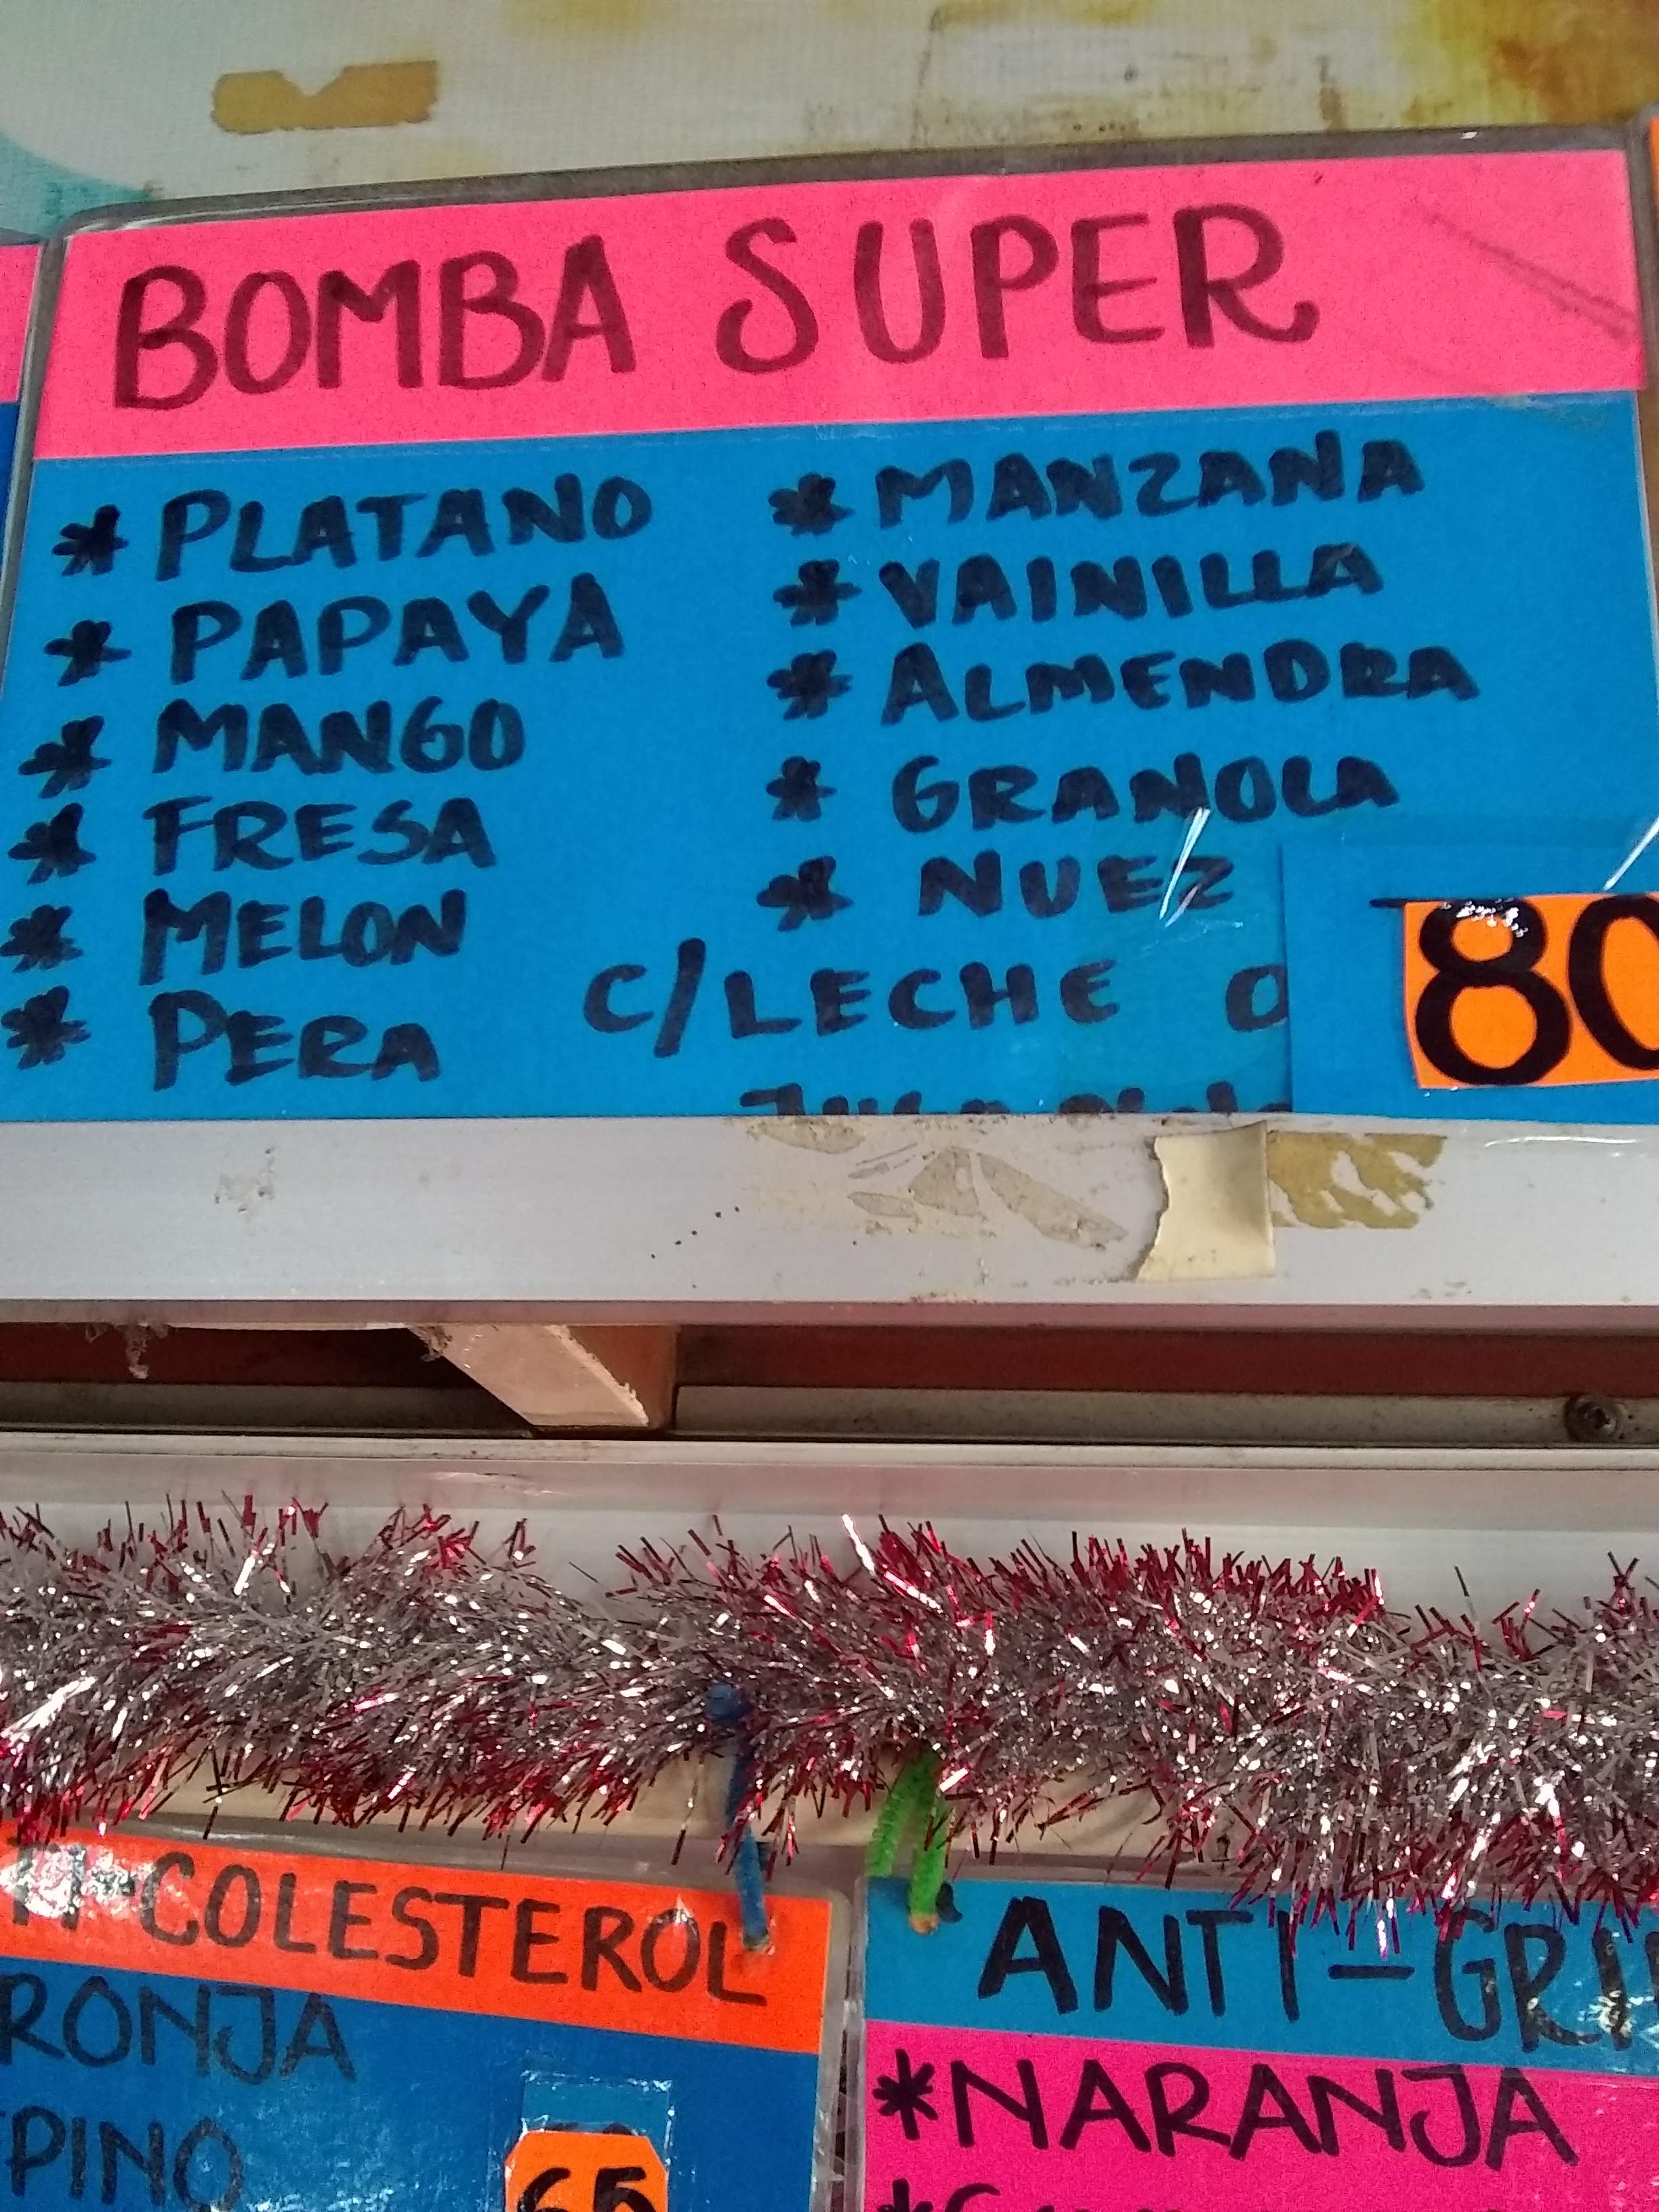 BOMBA SUPER
* PLATANO
* PAPAYA
* MANGO
* FRESA
* MELON
* PERA
* MANZANA
* VAINILLA
* ALMENDRA
* GRANOLA
* NUEZ
C/LECHE O
80
-COLESTEROL
RONJA
PINO
65
ANTI-GRI
*NARANJA